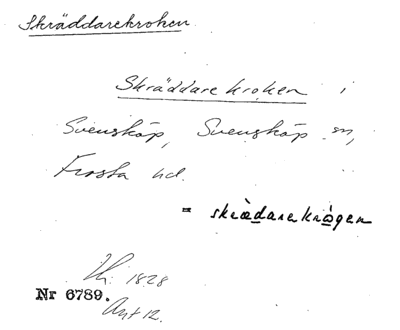 Skräddarekroken
Skräddarekroken i
Svensköp, Svensköp sn,
Frosta hd.
= skrædarakrågen
1828
Nr 6789.
Ant 12.